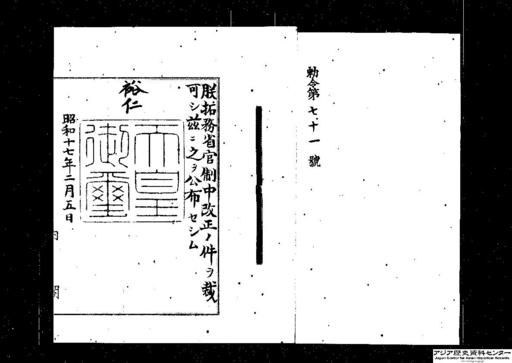 勅令第七十一號
朕拓務省官制中改正ノ件ヲ裁
可シ茲ニ之ヲ公布セシム
裕仁
天皇
御璽
昭和十七年二月五日
内閣
アジア歴史資料センター
Japan Center for Asian Historical Records